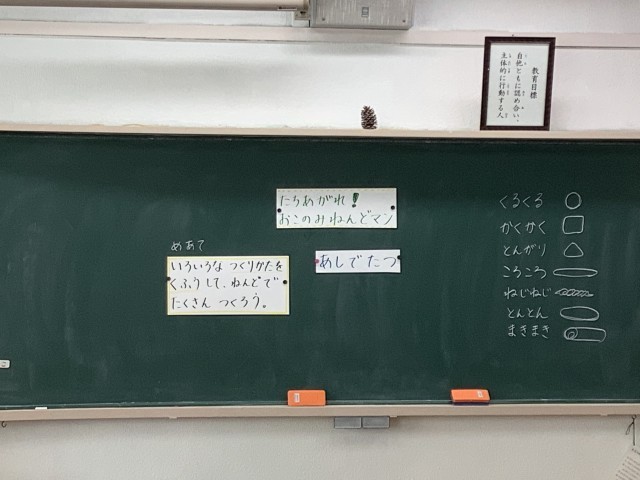 教育目標
自他ともに認め合い、
主体的に行動する人
たちあがれ!
おこのみねんどマン
めあて
いろいろな つくりかたを
くふうして、ねんどで
たくさん つくろう。
あしでたつ
くるくる
かくかく
とんがり
ころころ
ねじねじ
とんとん
まきまき